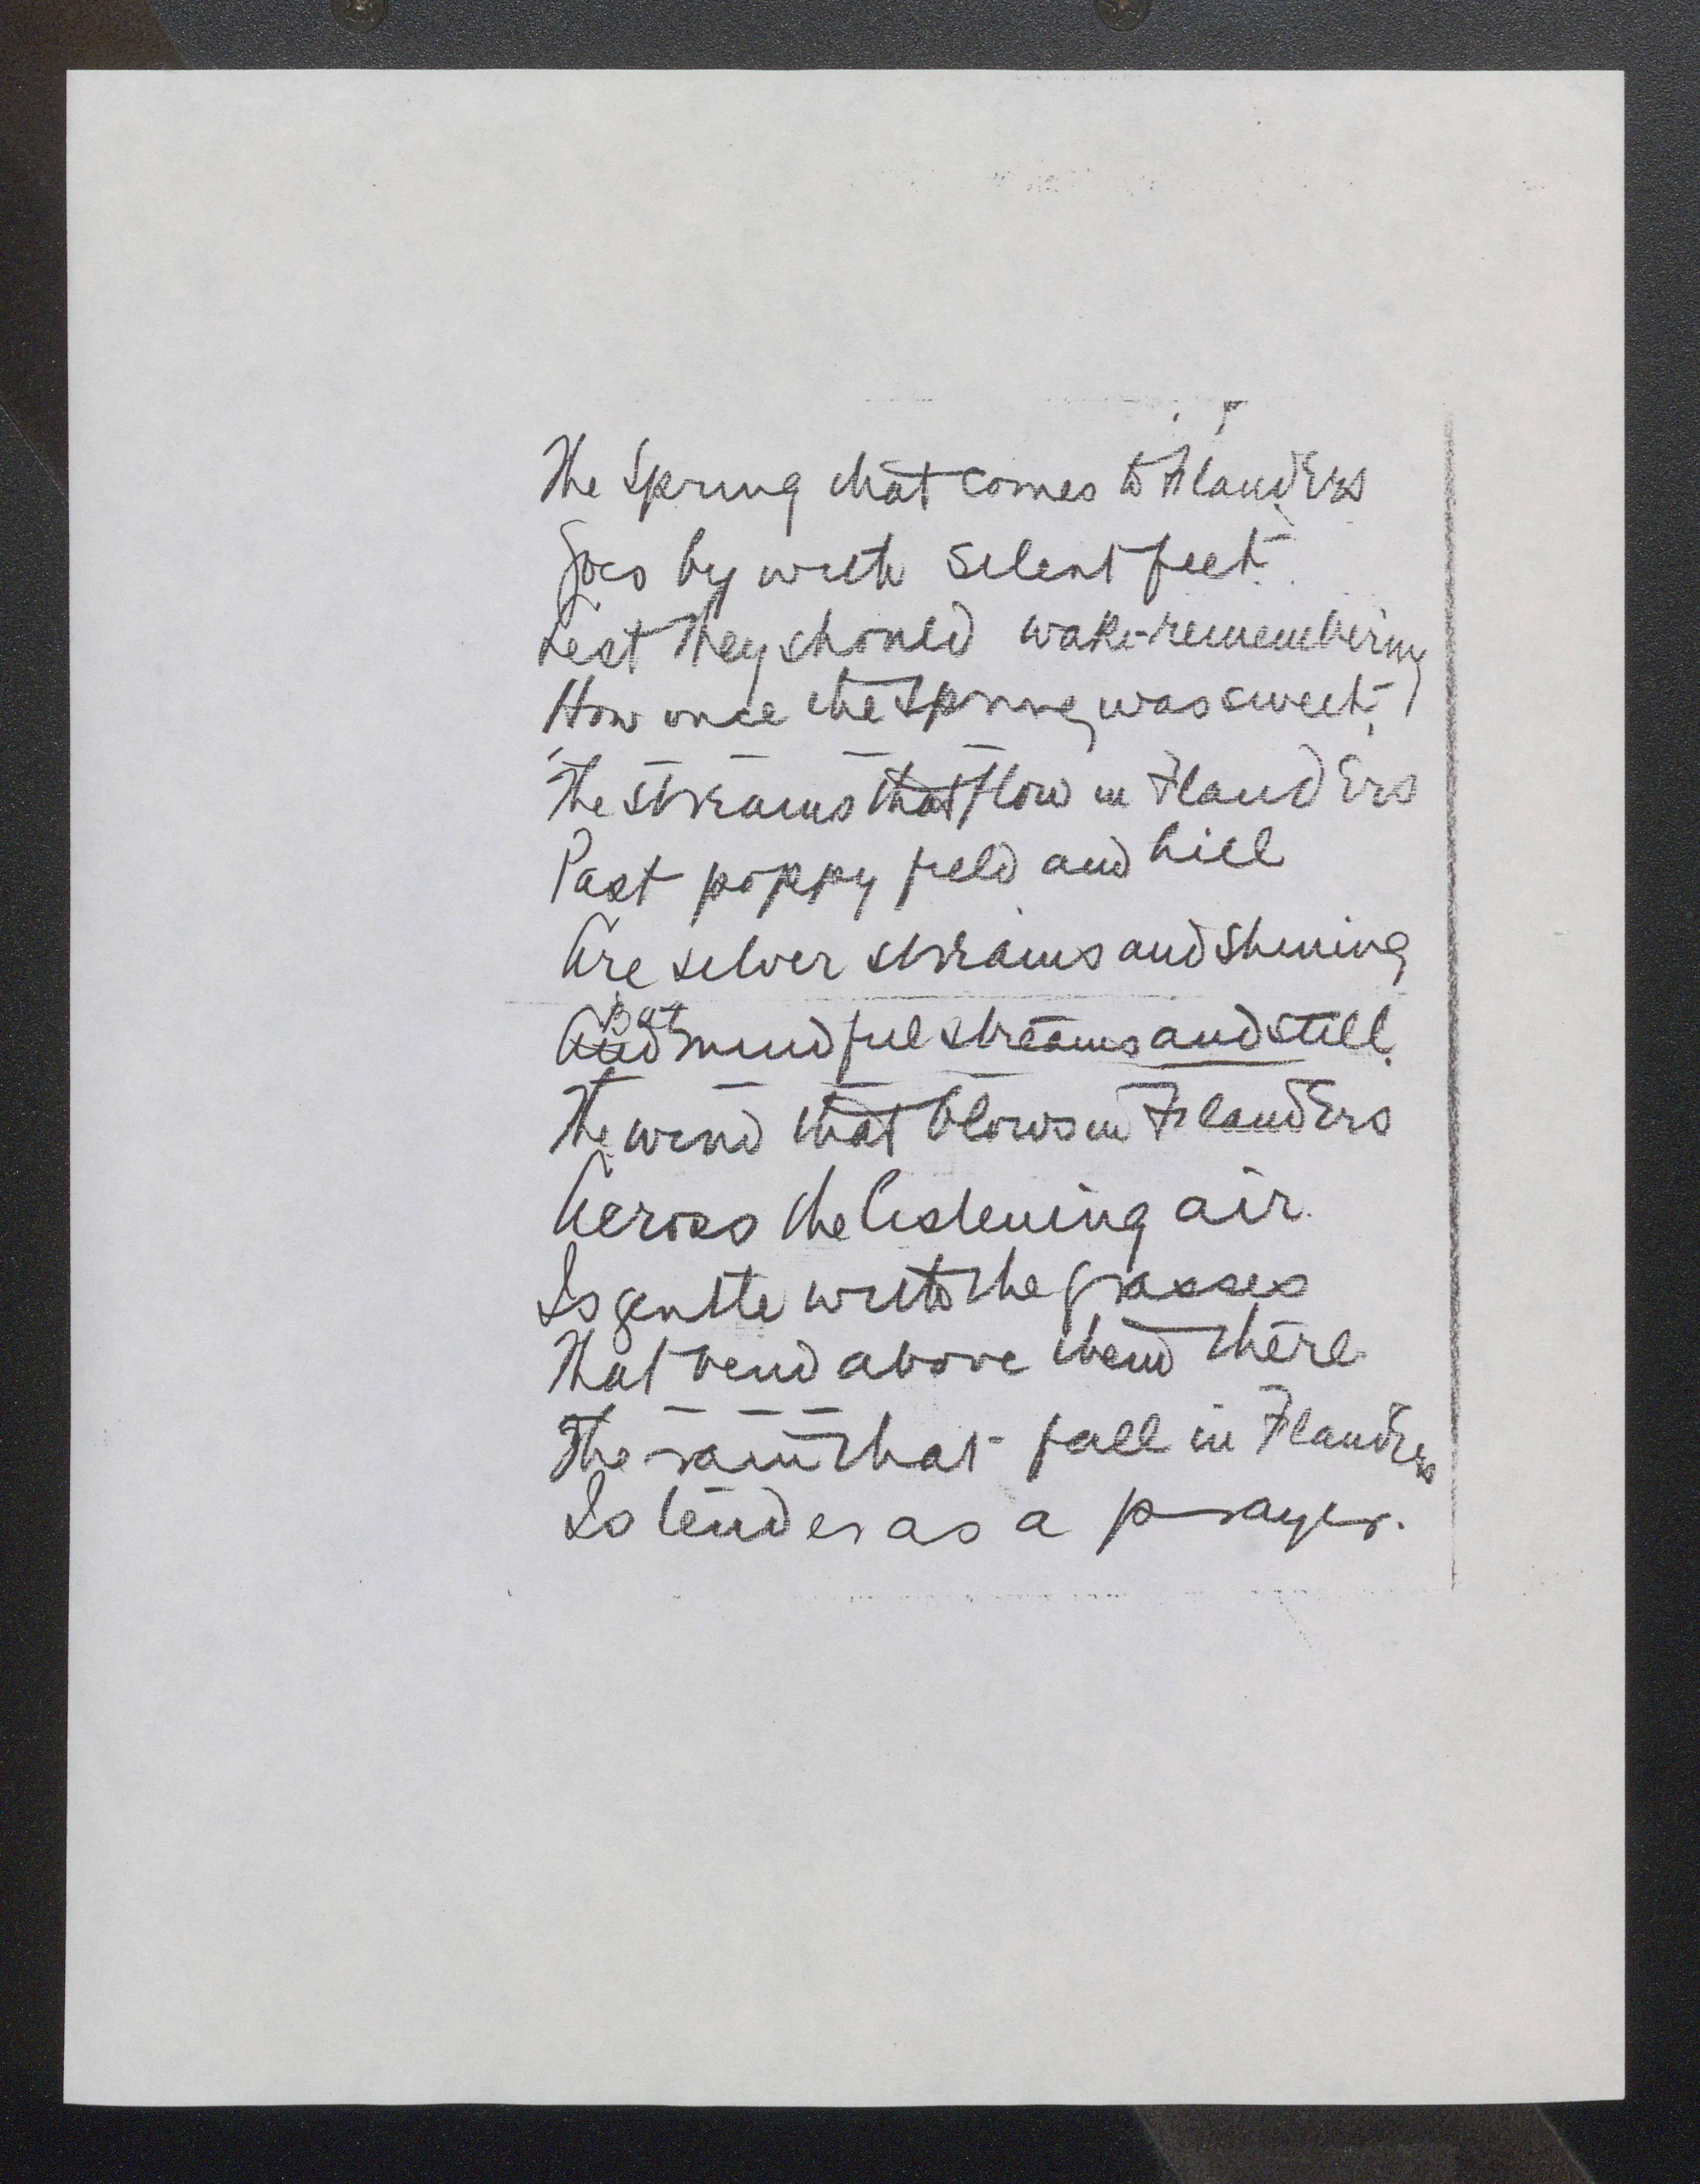 The Spring that comes to Flanders
Goes by with silent feet.
Lest they should wake-remembering
How once the Spring was sweet.
The streams that flow in Flanders
Past poppy field and hill
Are silver streams and shining
But
And mindful streams and still.
The wind that blows in Flanders
Across the listening air.
Is gentle with the grasses
That bend above them there
The rain that fall in Flanders
Is tender as a prayer.